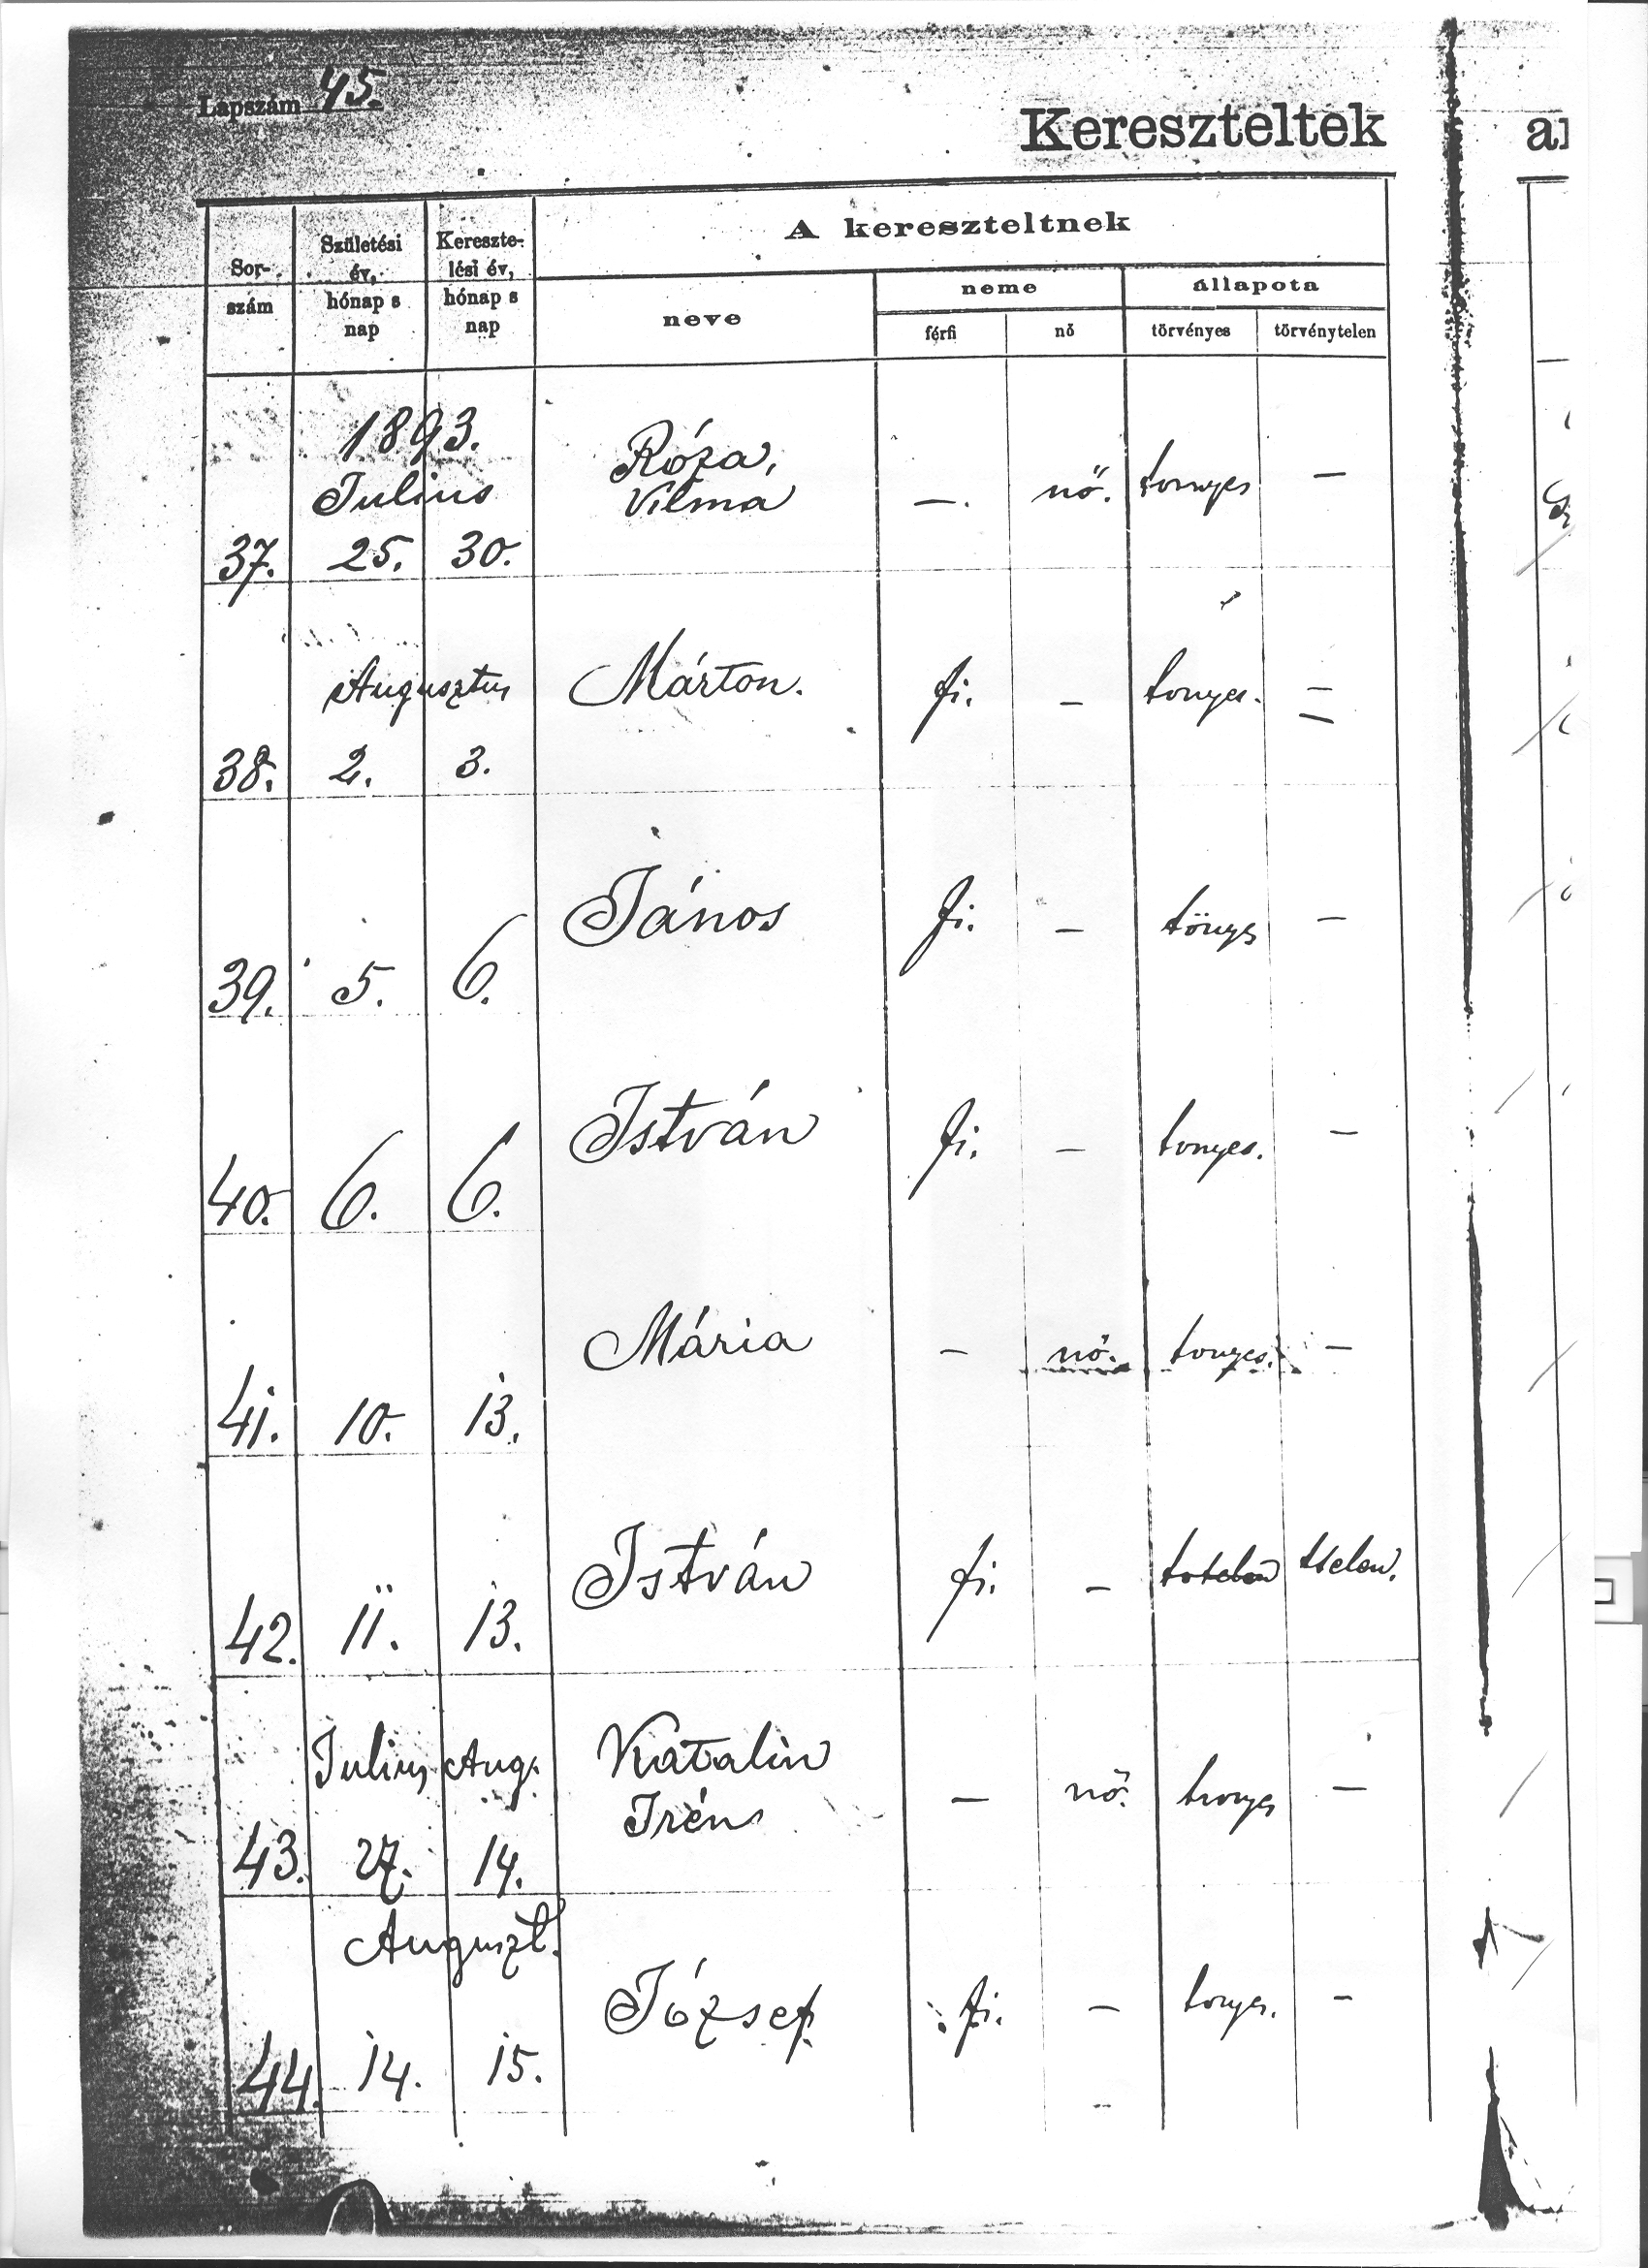 Lapszám 45.
Kereszteltek
Sor-
szám
Születési
év,
hónap s
nap
Kereszte-
lési év,
hónap s
nap
A kereszteltnek
neve
neme
állapota
férfi
nő
törvényes
törvénytelen
1893.
Julius
37. 25. 30. Róza, Vilma —. nő. tvnyes —
Augusztus
38. 2. 3. Márton. fi. — tvnyes. —
39. 5. 6. János fi. — tönys —
40. 6. 6. István fi. — tvnyes. —
41. 10. 13. Mária — nő. tvnyes. —
42. 11. 13. István fi. — ttelen.
Julius Aug.
43. 27. 14. Katalin Irén — nő. tvnyes —
Auguszt.
44. 14. 15. József. fi. — tvnyes. —